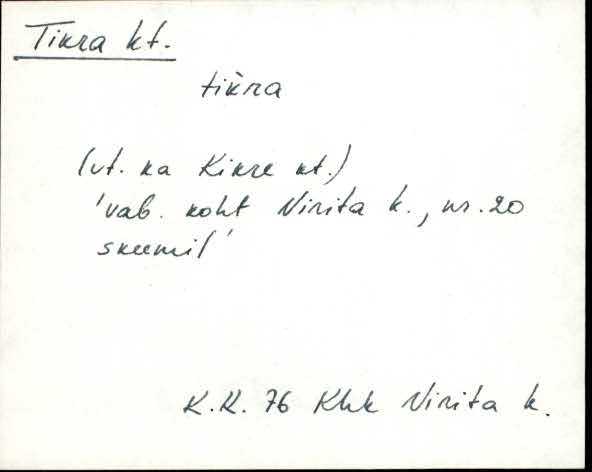 Tikra kt.
tik̀ra
(vt. ka Kikre kt.)
'vab. koht Virita k., nr. 20
skeemil'
K.K. 76 Khk Virita k.